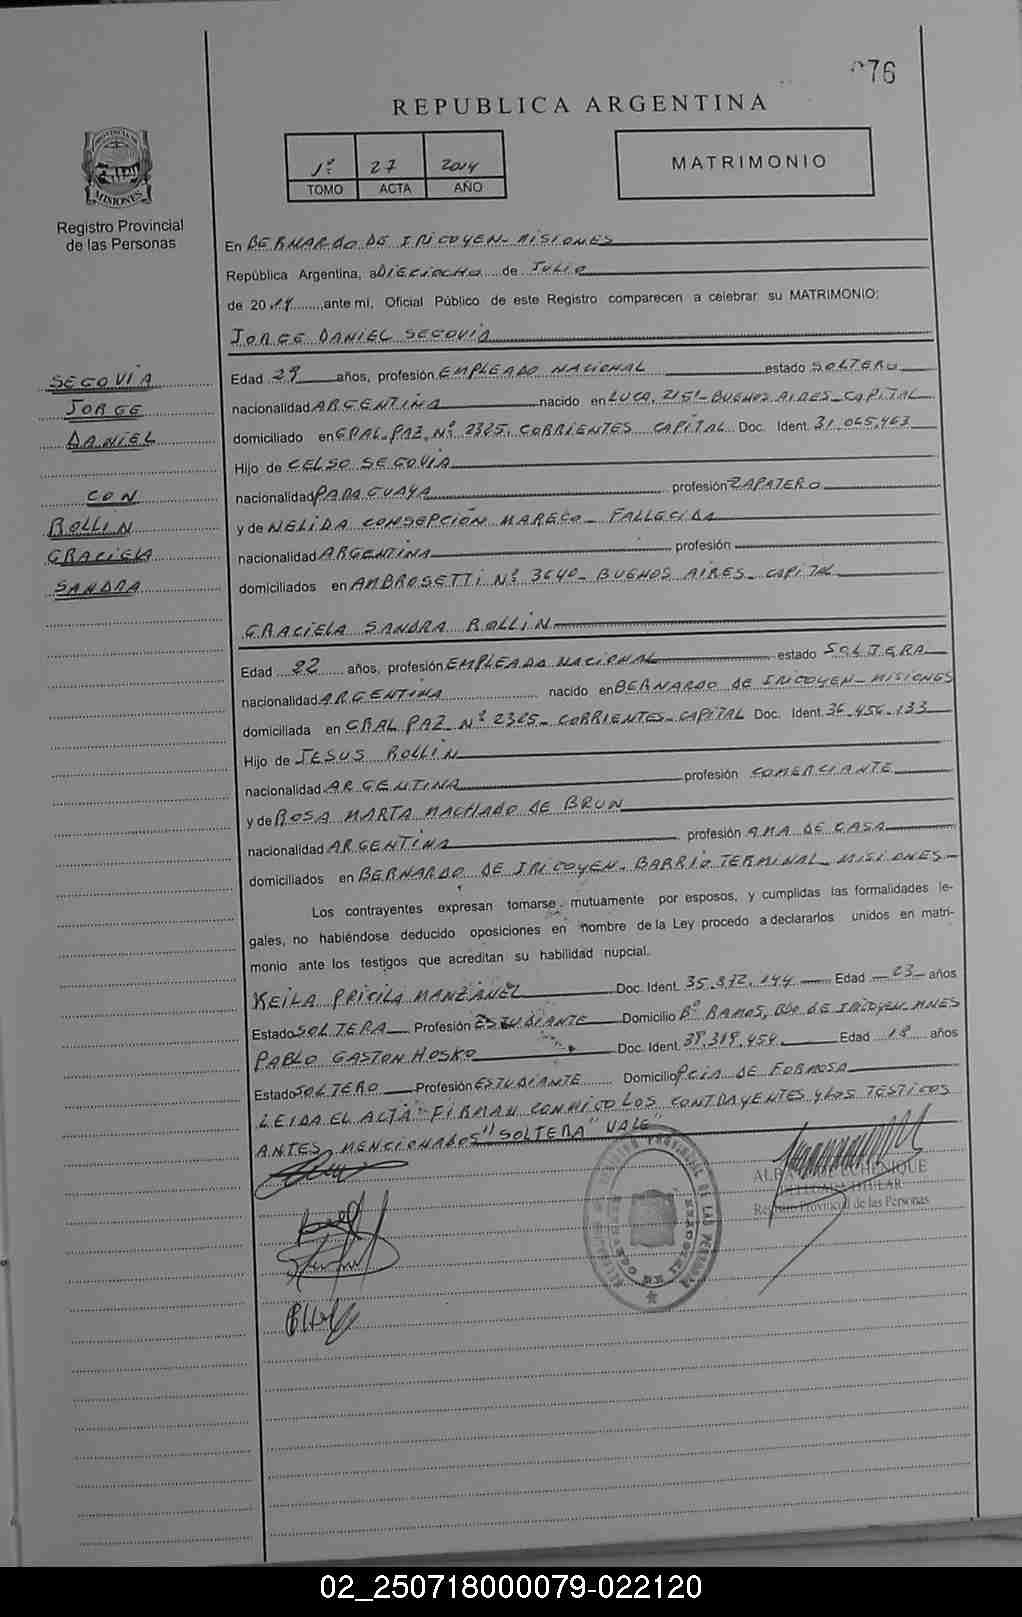 076
REPUBLICA ARGENTINA
PROVINCIA DE
MISIONES
Registro Provincial
de las Personas
1º 27 2014
TOMO ACTA AÑO
MATRIMONIO
En BERNARDO DE IRIGOYEN - MISIONES
República Argentina, a DIECIOCHO de JULIO
de 20 14 ante mí, Oficial Público de este Registro comparecen a celebrar su MATRIMONIO:
JORGE DANIEL SEGOVIA
SEGOVIA
JORGE
DANIEL
CON
ROLLIN
GRACIELA
SANDRA
Edad 29 años, profesión EMPLEADO NACIONAL estado SOLTERO
nacionalidad ARGENTINA nacido en LUCA, 2151 - BUENOS AIRES - CAPITAL
domiciliado en GRAL. PAZ. Nº 2305. CORRIENTES CAPITAL Doc. Ident. 31.065.463
Hijo de CELSO SEGOVIA
nacionalidad PARAGUAYA profesión ZAPATERO
y de NELIDA CONSEPCIÓN MARECO - FALLECIDA
nacionalidad ARGENTINA profesión
domiciliados en AMBROSETTI Nº 3640 - BUENOS AIRES - CAPITAL
GRACIELA SANDRA ROLLIN
Edad 22 años, profesión EMPLEADA NACIONAL estado SOLTERA
nacionalidad ARGENTINA nacido en BERNARDO DE IRIGOYEN - MISIONES
domiciliada en GRAL PAZ Nº 2305 - CORRIENTES - CAPITAL Doc. Ident. 36.456.133
Hijo de JESUS ROLLIN
nacionalidad ARGENTINA profesión COMERCIANTE
y de ROSA MARTA MACHADO DE BRUN
nacionalidad ARGENTINA profesión AMA DE CASA
domiciliados en BERNARDO DE IRIGOYEN - BARRIO TERMINAL - MISIONES -
Los contrayentes expresan tomarse mutuamente por esposos, y cumplidas las formalidades le-
gales, no habiéndose deducido oposiciones en nombre de la Ley procedo a declararlos unidos en matri-
monio ante los testigos que acreditan su habilidad nupcial.
KEILA PRICILA MANZANEL Doc. Ident. 35.872.144 Edad 23 años
Estado SOLTERA Profesión ESTUDIANTE Domicilio Bº RAMOS, BDO DE IRIGOYEN MNES
PABLO GASTON HOSKO Doc. Ident. 38.319.454 Edad 19 años
Estado SOLTERO Profesión ESTUDIANTE Domicilio PCIA DE FORMOSA
LEIDA EL ACTA FIRMAN CONMIGO LOS CONTRAYENTES y LOS TESTIGOS
ANTES MENCIONADOS "SOLTERA" VALE
TITULAR
Registro Provincial de las Personas
02_250718000079-022120